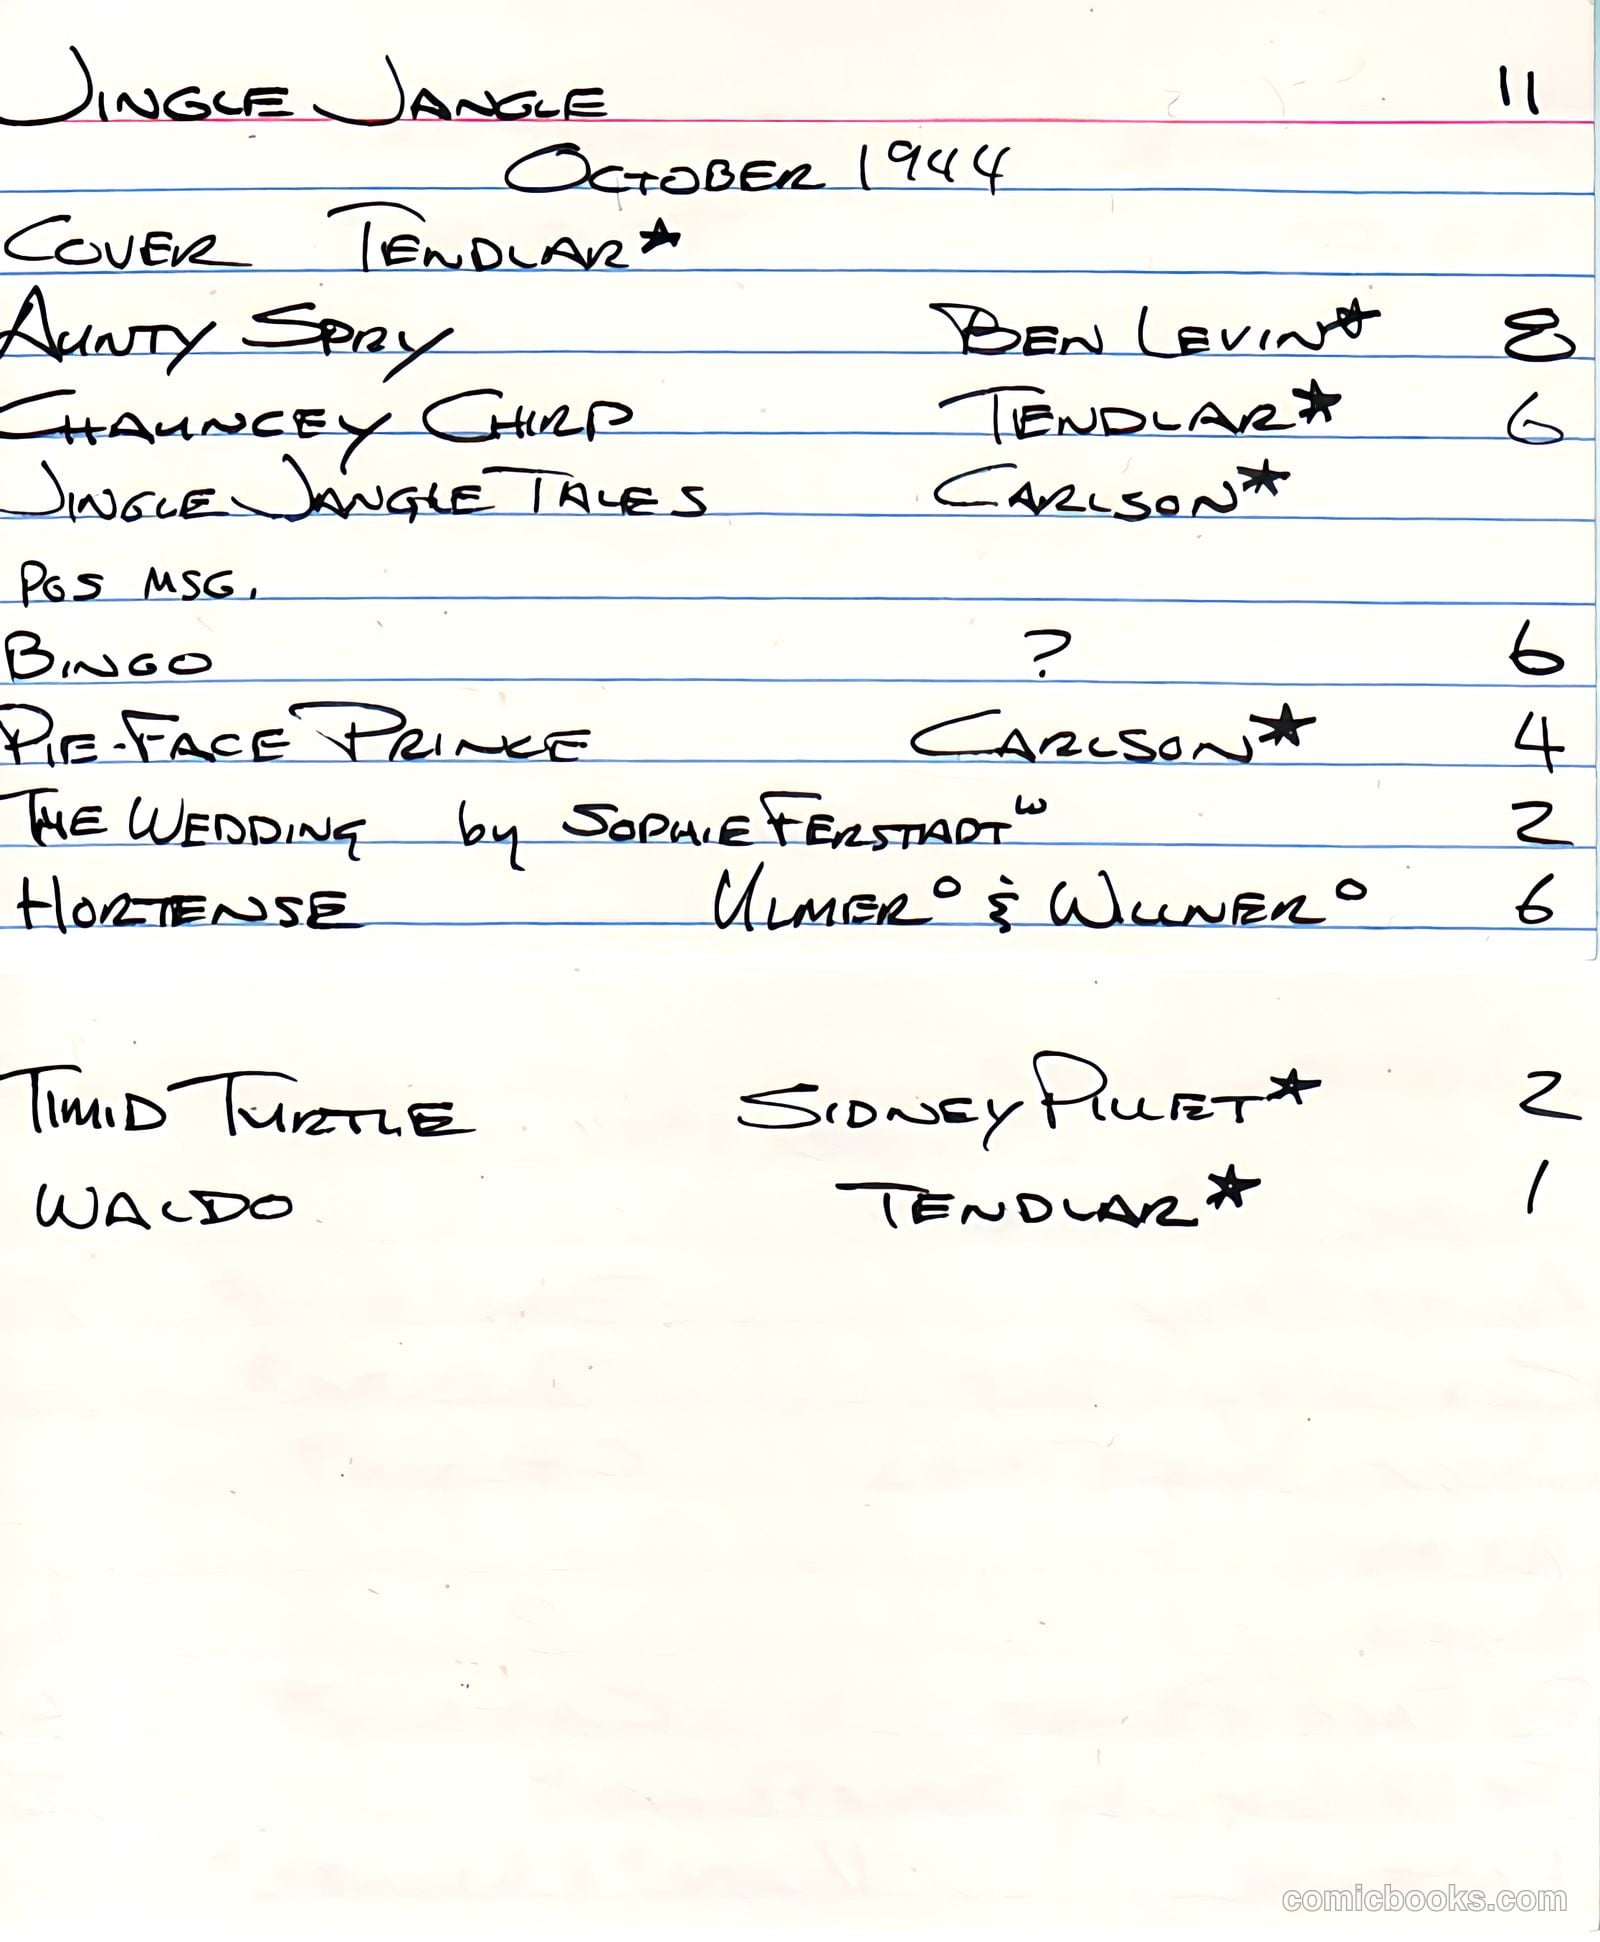 JINGLE JANGLE 11
OCTOBER 1944
COVER TENDLAR★
AUNTY SPRY BEN LEVIN★ 8
CHAUNCEY CHIRP TENDLAR★ 6
JINGLE JANGLE TALES CARLSON★
PGS MSG.
BINGO ? 6
PIE-FACE PRINCE CARLSON★ 4
THE WEDDING by SOPHIE FERSTADT ω 2
HORTENSE ULMER° & WILLNER° 6
TIMID TURTLE SIDNEY PILLET★ 2
WALDO TENDLAR★ 1
comicbooks.com